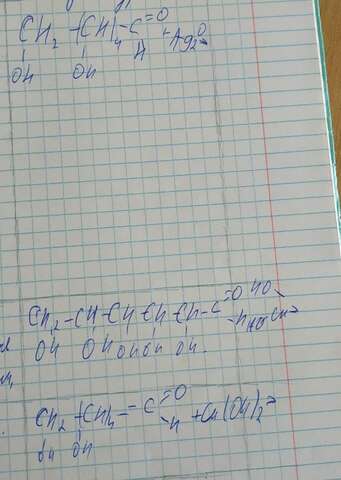 CH₂ – (CH)₄ – C =O + Ag₂O →
OH OH H
CH₂ – CH – CH – CH – CH – C =O HO
OH OH OH OH OH. – H HO Cu →
CH₂ – (CH)₄ – C =O
OH OH – H + Cu(OH)₂ →